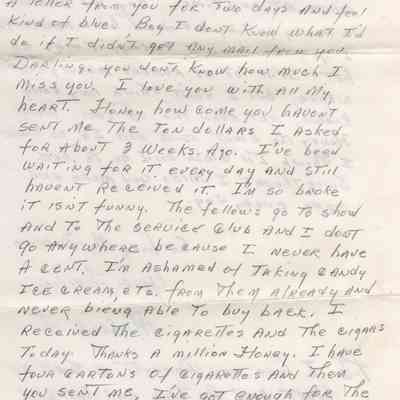 A letter from you for two days and feel
kind of blue. Boy I dont know what I'd
do if I didn't get any mail from you
Darling. you dont know how much I
miss you. I love you with all my
heart. Honey how come you havent
sent me the ten dollars I asked
for about 3 weeks. ago. I've been
waiting for it every day and still
havent received it. I'm so broke
it isnt funny. The fellows go to show
and to the service club and I dont
go anywhere because I never have
a cent. I'm ashamed of taking candy
ice cream, ets. from them already and
never being able to buy back. I
received the cigarettes and the cigars
today. Thanks a million Honey. I have
four cartons of cigarettes and then
you sent me, I've got enough for the